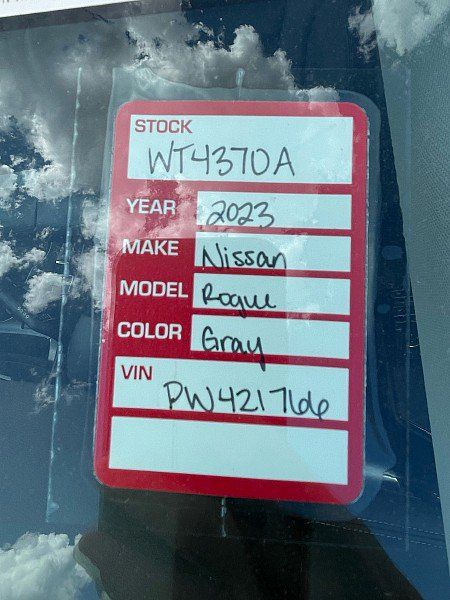 STOCK
WT4370A
YEAR 2023
MAKE Nissan
MODEL Rogue
COLOR Gray
VIN
PW421766